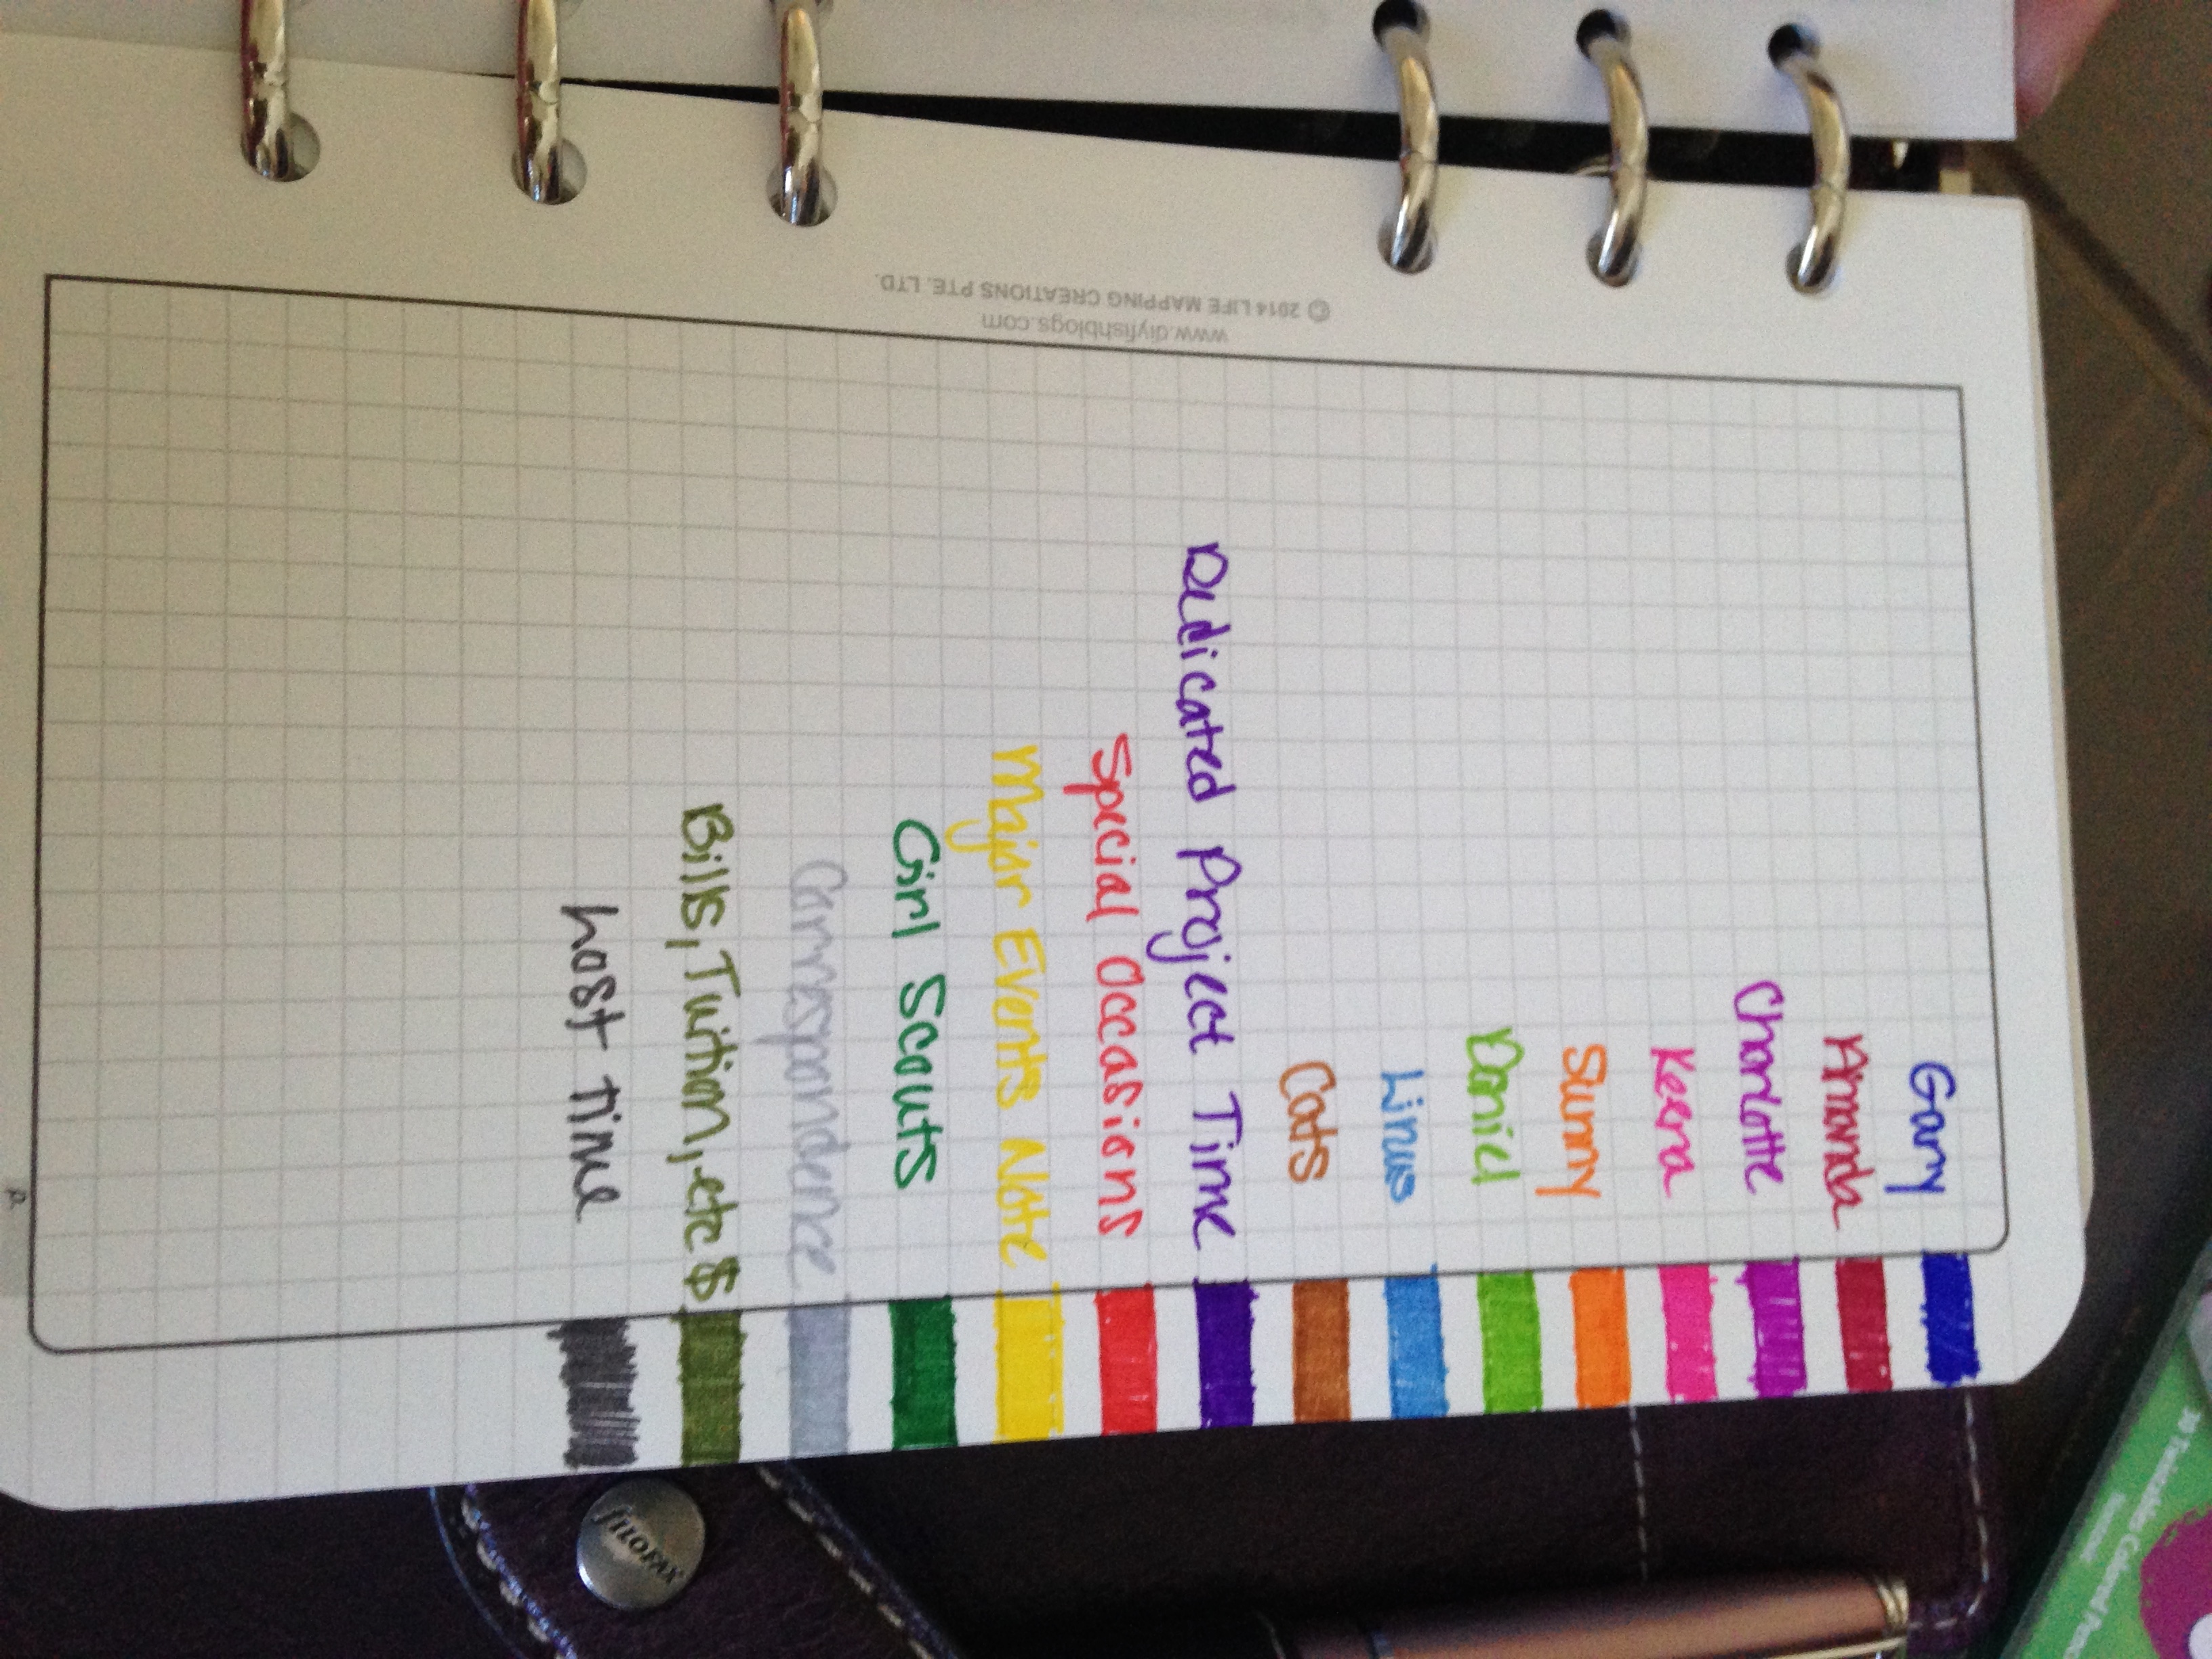 Gary
Amanda
Charlotte
Keera
Sunny
Daniel
Linus
Cats
Dedicated Project Time
Special Occasions
Major Events Note
Girl Scouts
Correspondence
Bills, Tuition, etc $
host time
www.diyfishblogs.com
© 2014 LIFE MAPPING CREATIONS PTE. LTD.
fILOFAX